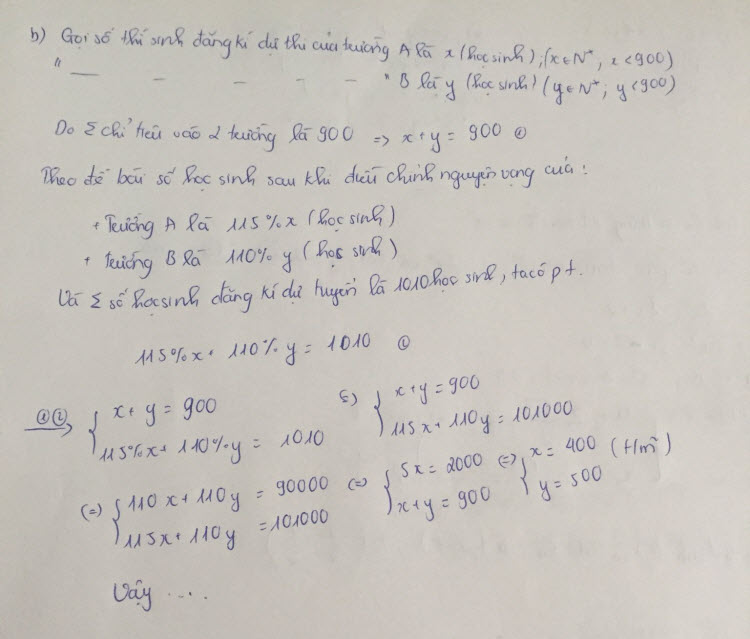 b) Gọi số thí sinh đăng kí dự thi của trường A là x (học sinh), (x ∈ N*, x < 900)
" — – – – – " B là y (học sinh) (y ∈ N*; y < 900)
Do Σ chỉ tiêu vào 2 trường là 900 => x + y = 900 ①
Theo đề bài số học sinh sau khi điều chỉnh nguyện vọng của:
+ Trường A là 115%x (học sinh)
+ Trường B là 110% y (học sinh)
Và Σ số học sinh đăng kí dự tuyển là 1010 học sinh, ta có pt.
115%x + 110%y = 1010
①② => { x + y = 900 (=) { x + y = 900
115%x + 110%y = 1010 115x + 110y = 101000
(=) { 110x + 110y = 90000 (=) { 5x = 2000 (=) { x = 400 (t/m)
115x + 110y = 101000 x + y = 900 y = 500
Vậy ....